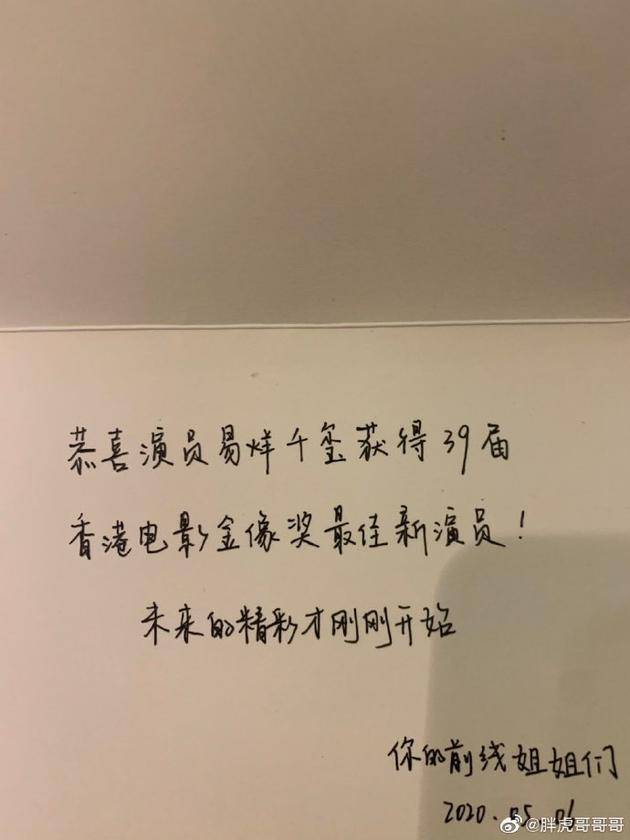 恭喜演员易烊千玺获得39届
香港电影金像奖最佳新演员！
未来的精彩才刚刚开始
你的前线姐姐们
2020.05.
@胖虎哥哥哥